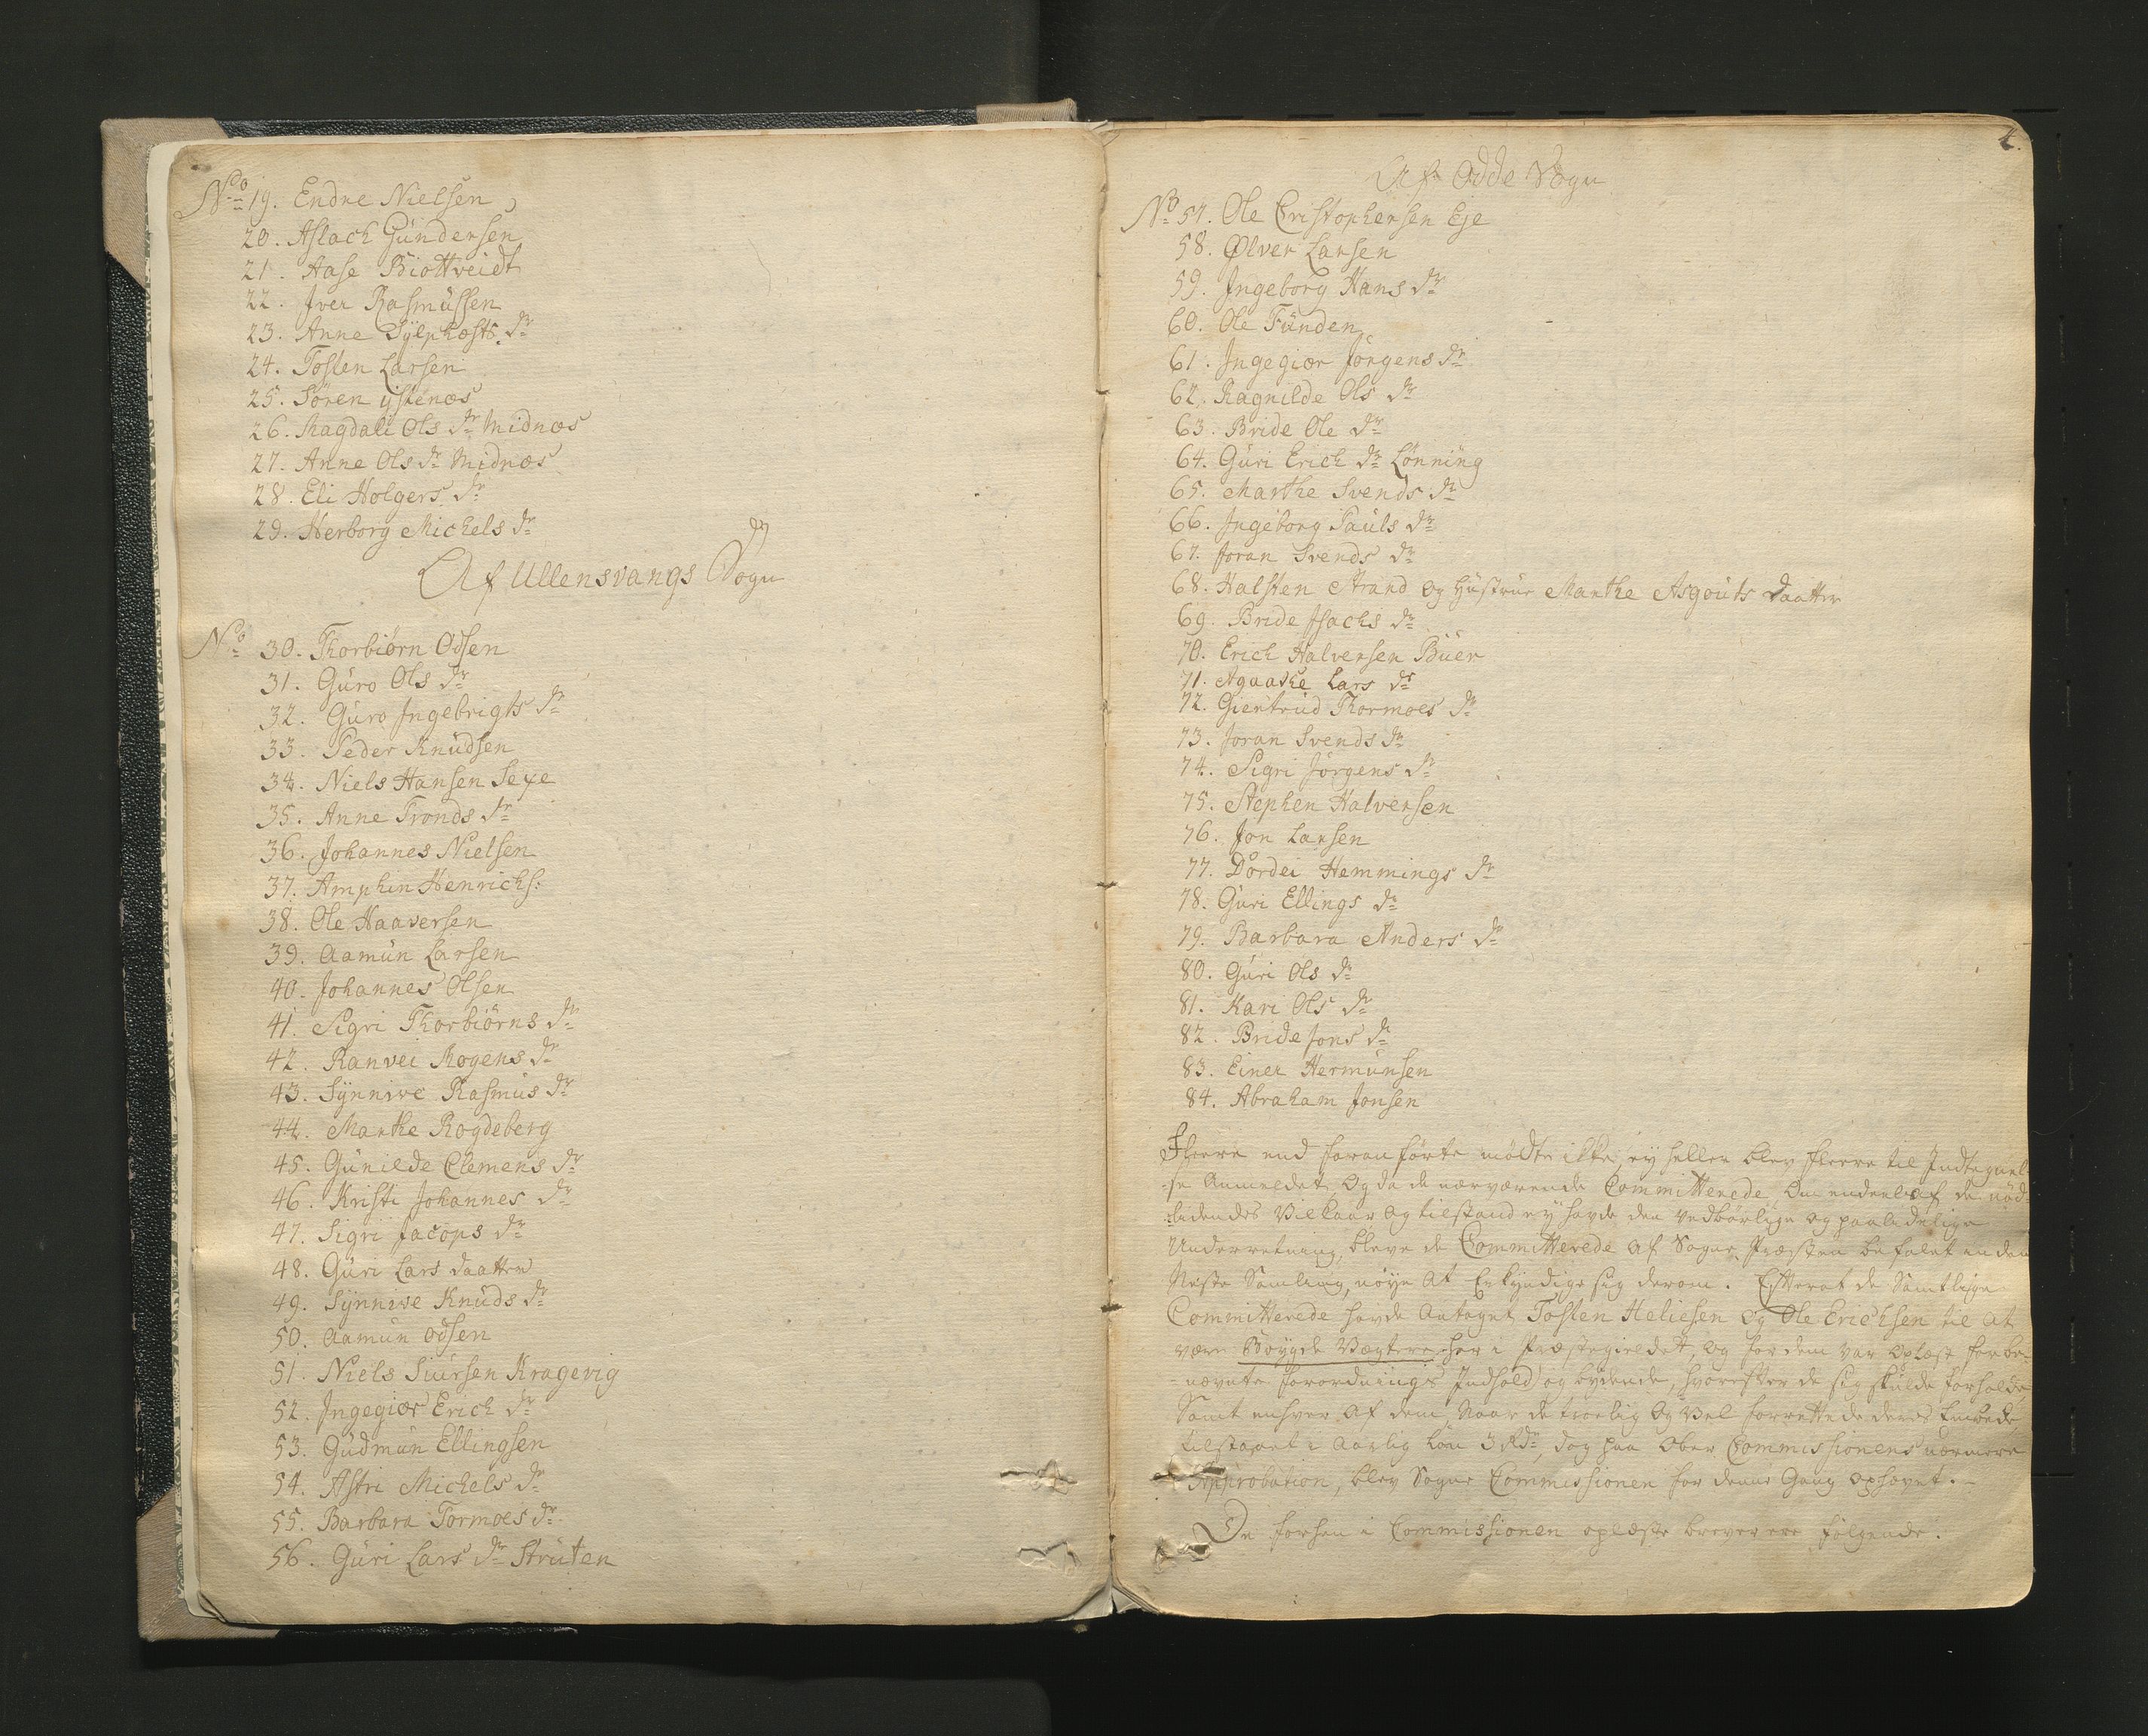 No 19. Endre Nielsen
20. Aslach Gündersen
21. Aase Biottveidt
22. Iver Rasmüssen
23. Anne Sylphests dr
24. Tosten Larsen
25. Sören ystenæs
26. Magdali Ols dr Midnæs
27. Anne Ols dr Midnæs
28. Eli Holgers dr
29. Herborg Michels dr
Af Ullensvangs Sogn
No 30. Thorbiörn Odsen
31. Güro Ols dr
32. Güro Ingebrigts dr
33. Peder Knüdsen
34. Niels Hansen Sexe
35. Anne Tronds dr
36. Johannes Nielsen
37. Amphin Henrichs:
38. Ole Haaversen
39. Aamün Larsen
40. Johannes Olsen
41. Sigri Thorbiörns dr
42. Ranvei Mogens dr
43. Synniwe Rasmüs dr
44. Marthe Rogdeberg
45. Günilde Clemens dr
46. Kristi Johannes dr
47. Sigri Jacops dr
48. Güri Lars daatter
49. Synniwe Knüds dr
50. Aamün Odsen
51. Niels Siürsen Kragevig
52. Ingegiær Erich dr
53. Güdmün Ellingsen
54. Astri Michels dr
55. Barbara Tormoes dr
56. Güri Lars dr Strüten
4.
Af Odde Sogn
No 57. Ole Cristophersen Eje
58. Ølver Larsen
59. Ingeborg Hans dr
60. Ole Fünden
61. Ingegiær Jörgens dr
62. Ragnilde Ols dr
63. Bride Ole dr
64. Güri Erich dr Lönning
65. Marthe Svends dr
66. Ingeborg Pauls dr
67. Joran Svends dr
68. Halsten Strand og Hüstrue Marthe Asgouts daatter
69. Bride Isachs dr
70. Erich Halversen Büer
71. Agaathe Lars dr
72. Giertrüd Thormoes dr
73. Joran Svends dr
74. Sigri Jörgens dr
75. Stephen Halversen
76. Jon Larsen
77. Dordei Hemmings dr
78. Güri Ellings dr
79. Barbara Anders dr
80. Güri Ols dr
81. Kari Ols dr
82. Bride Jons dr
83. Einer Hermünsen
84. Abraham Jonsen
Fleere end foranførte mødte ikke, ey heller blev fleere til Indtegnel-
-se Anmeldet, Og da de nærværende Committerede, Om endeel af de nød-
-lidendes Vilkaar og tilstand ey havde den vedbørlige og paalidelige
Underretning, bleve de Committerede af Sogne Præsten befalet inden
Neste Samling, nøye at Erkyndige sig derom. Efter at de Samtlige
Committerede havde Antaget Tosten Heliesen og Ole Erichsen til at
være Bøygde Vægtere her i Præstegieldet, og for dem var oplæst forbe-
-nævnte forordnings Indhold og bydende, hvorefter de sig skulde forholde,
Samt enhver af dem, Naar de troelig og vel forrettede deres Embede,
tilstaaet i Aarlig Løn 3 Rdr, dog paa Ober Commissionens nærmere
Approbation, blev Sogne Commissionen for denne Gang ophævet.
De forhen i Commissionen oplæste breve ere følgende.